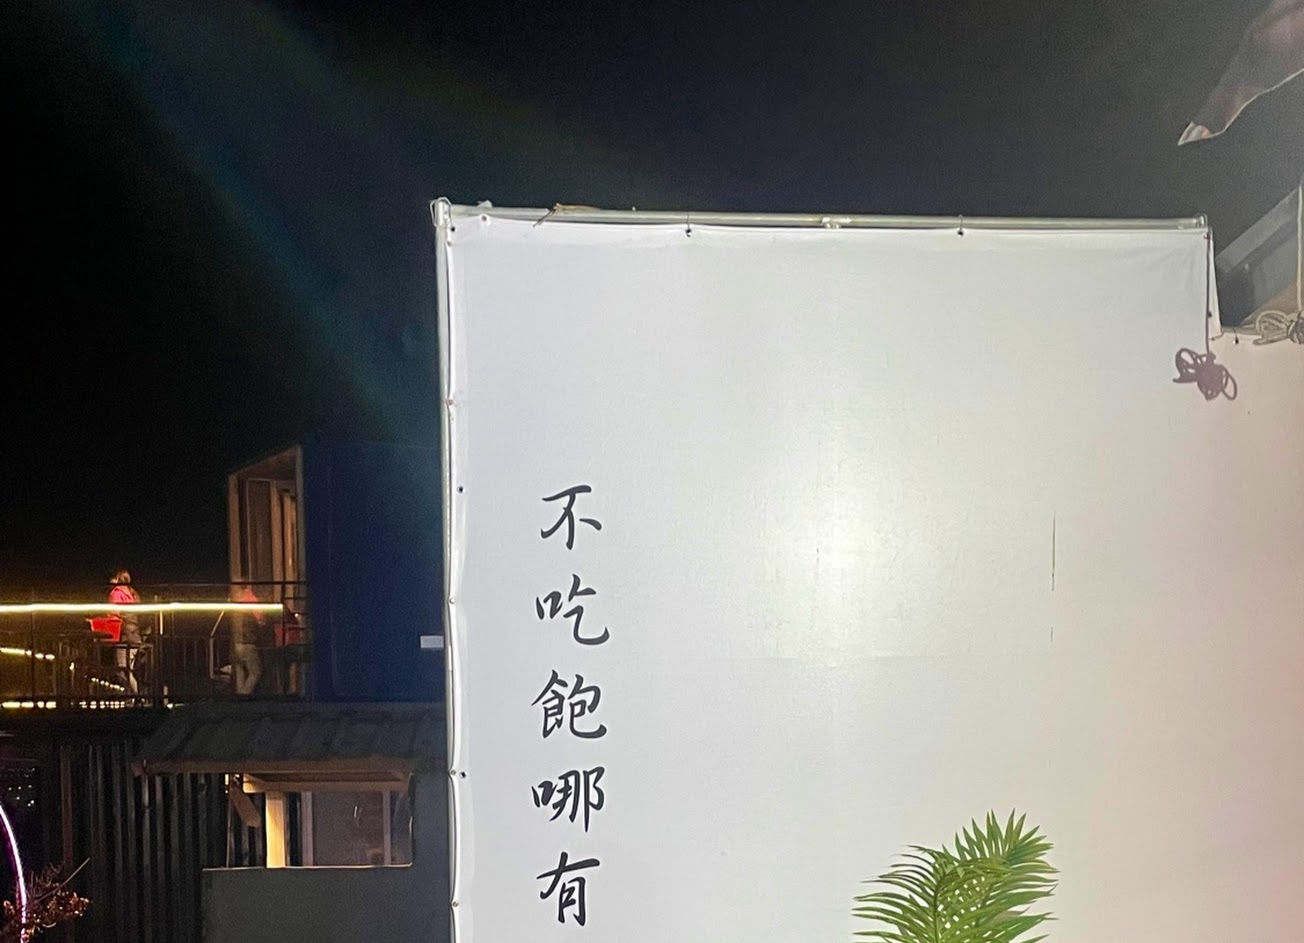 不吃飽哪有